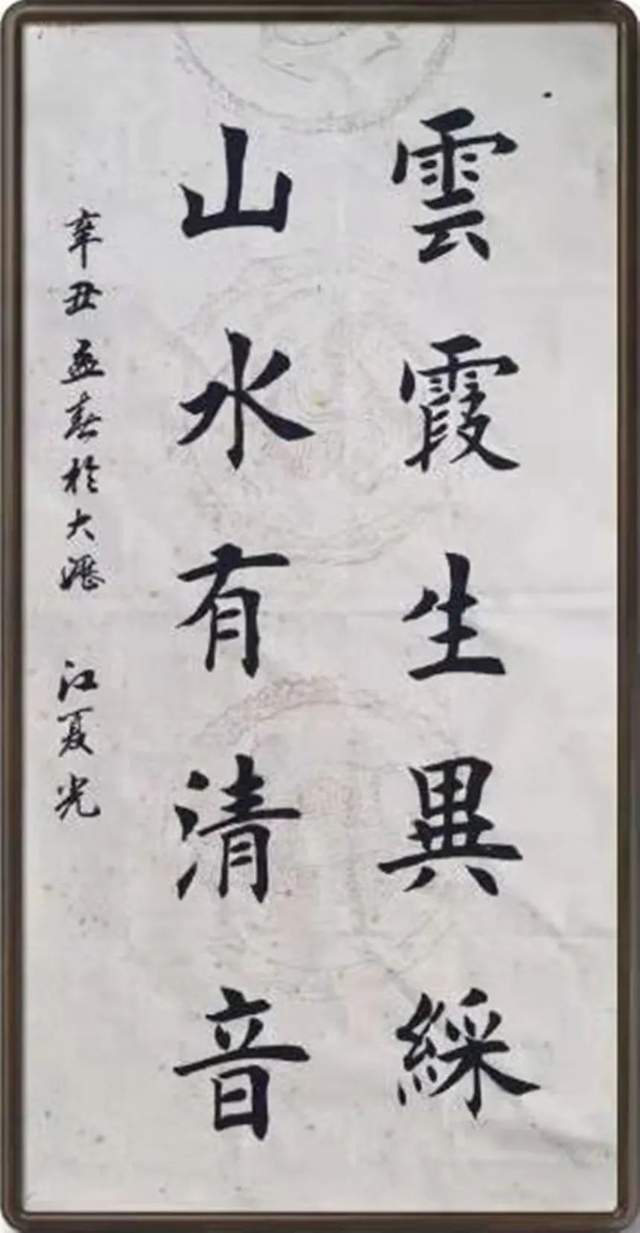 雲霞生異綵
山水有清音
辛丑孟春於大瀝 江夏光